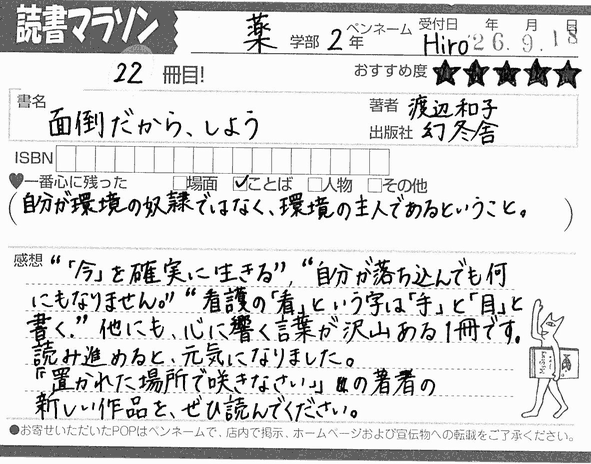 読書マラソン
薬 学部 2年 ペンネーム Hiro 受付日 年 月 日 '26.9.18
22 冊目! おすすめ度 ★★★★★
書名 面倒だから、しよう
著者 渡辺和子
出版社 幻冬舎
ISBN
♥一番心に残った □場面 ☑ことば □人物 □その他
(自分が環境の奴隷ではなく、環境の主人であるということ。)
感想 “「今」を確実に生きる”, “自分が落ち込んでも何
にもなりません。” “看護の「看」という字は「手」と「目」と
書く.” 他にも、心に響く言葉が沢山ある1冊です。
読み進めると、元気になりました。
「置かれた場所で咲きなさい」の著者の
新しい作品を、ぜひ読んでください。
●お寄せいただいたPOPはペンネームで、店内で掲示、ホームページおよび宣伝物への転載をご了承ください。